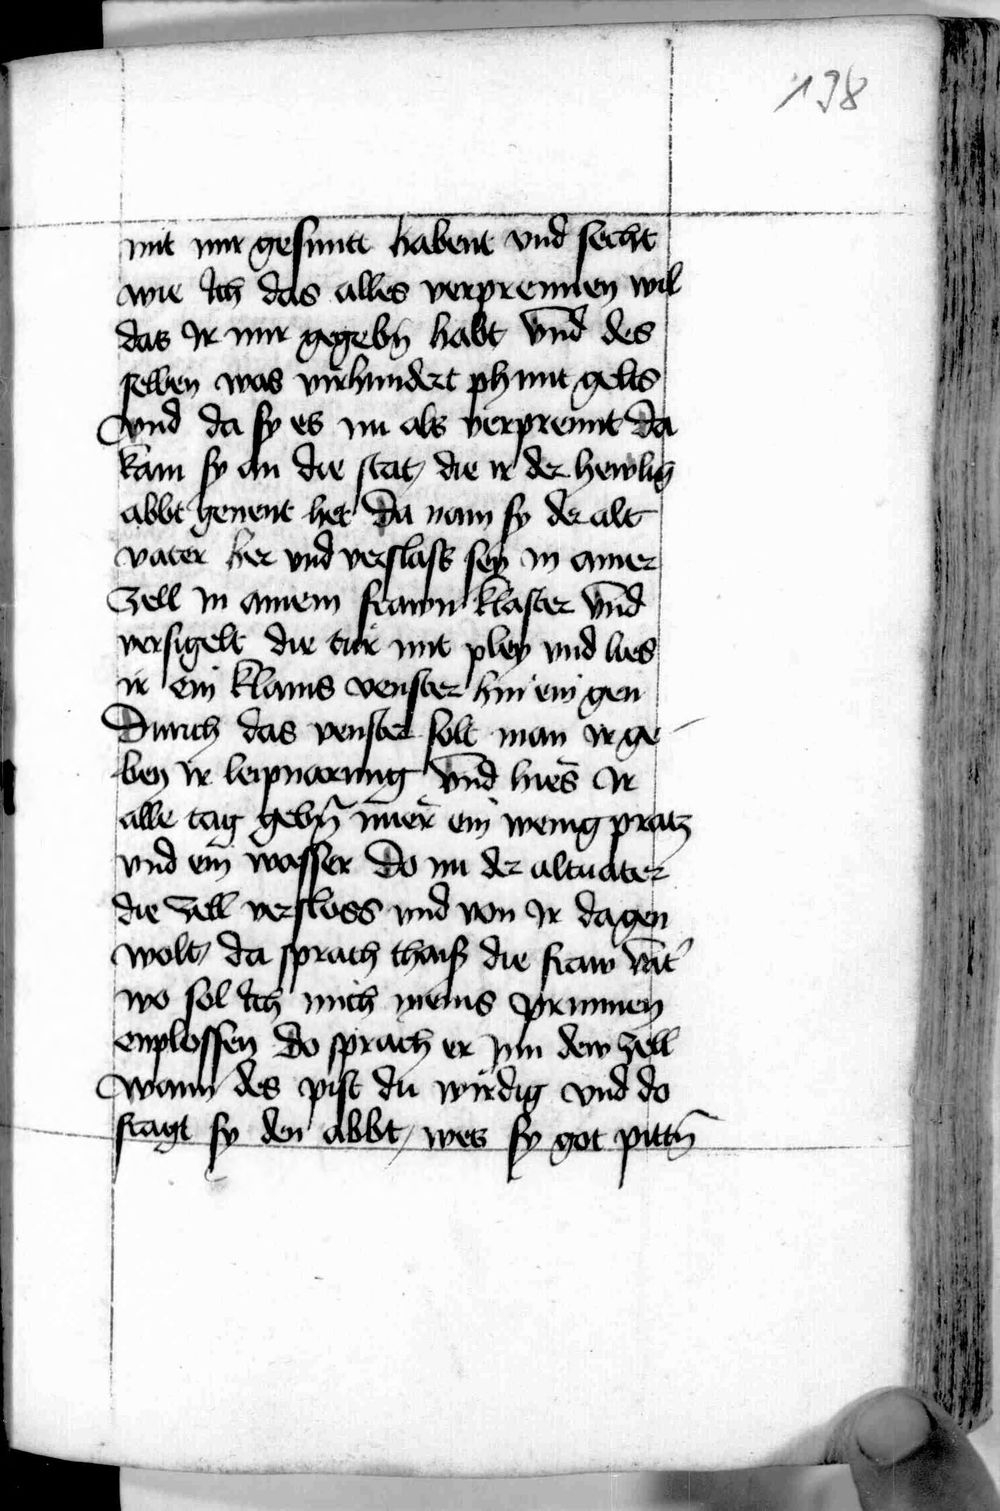 138
mit mir gesuntt habent vnd secht
wie Ich das alles verprennen wil
das Ir mir gegebn̄ habt vnd des
selben was virhundert phunt gelts
vnd da sy es nu als verprennt Da
kam sy an die stat / die ir der heylig
abbt genent het Da nam sy der alt
vater her vnd verslass sey in ainer
Zell in ainem frawn klaster vnd
versigelt die tür mit pley vnd lies
ir ein klains venster hin ein gen
Durch das venster solt man ir ge
ben ir leipnarung vnd hies Ir
alle tag gebn̄ nuer ein wenig pratz
vnd ein wasser Do nu der altuater
die zell versloss vnd von Ir dagen
wolt / da sprach thaiß die fraw vat'
wo sol Ich mich meins prunnen
enplossen Do sprach er Inn dew zell
wann des pist du wirdig vnd do
fragt sy den abbt / wes sy got pittn̄